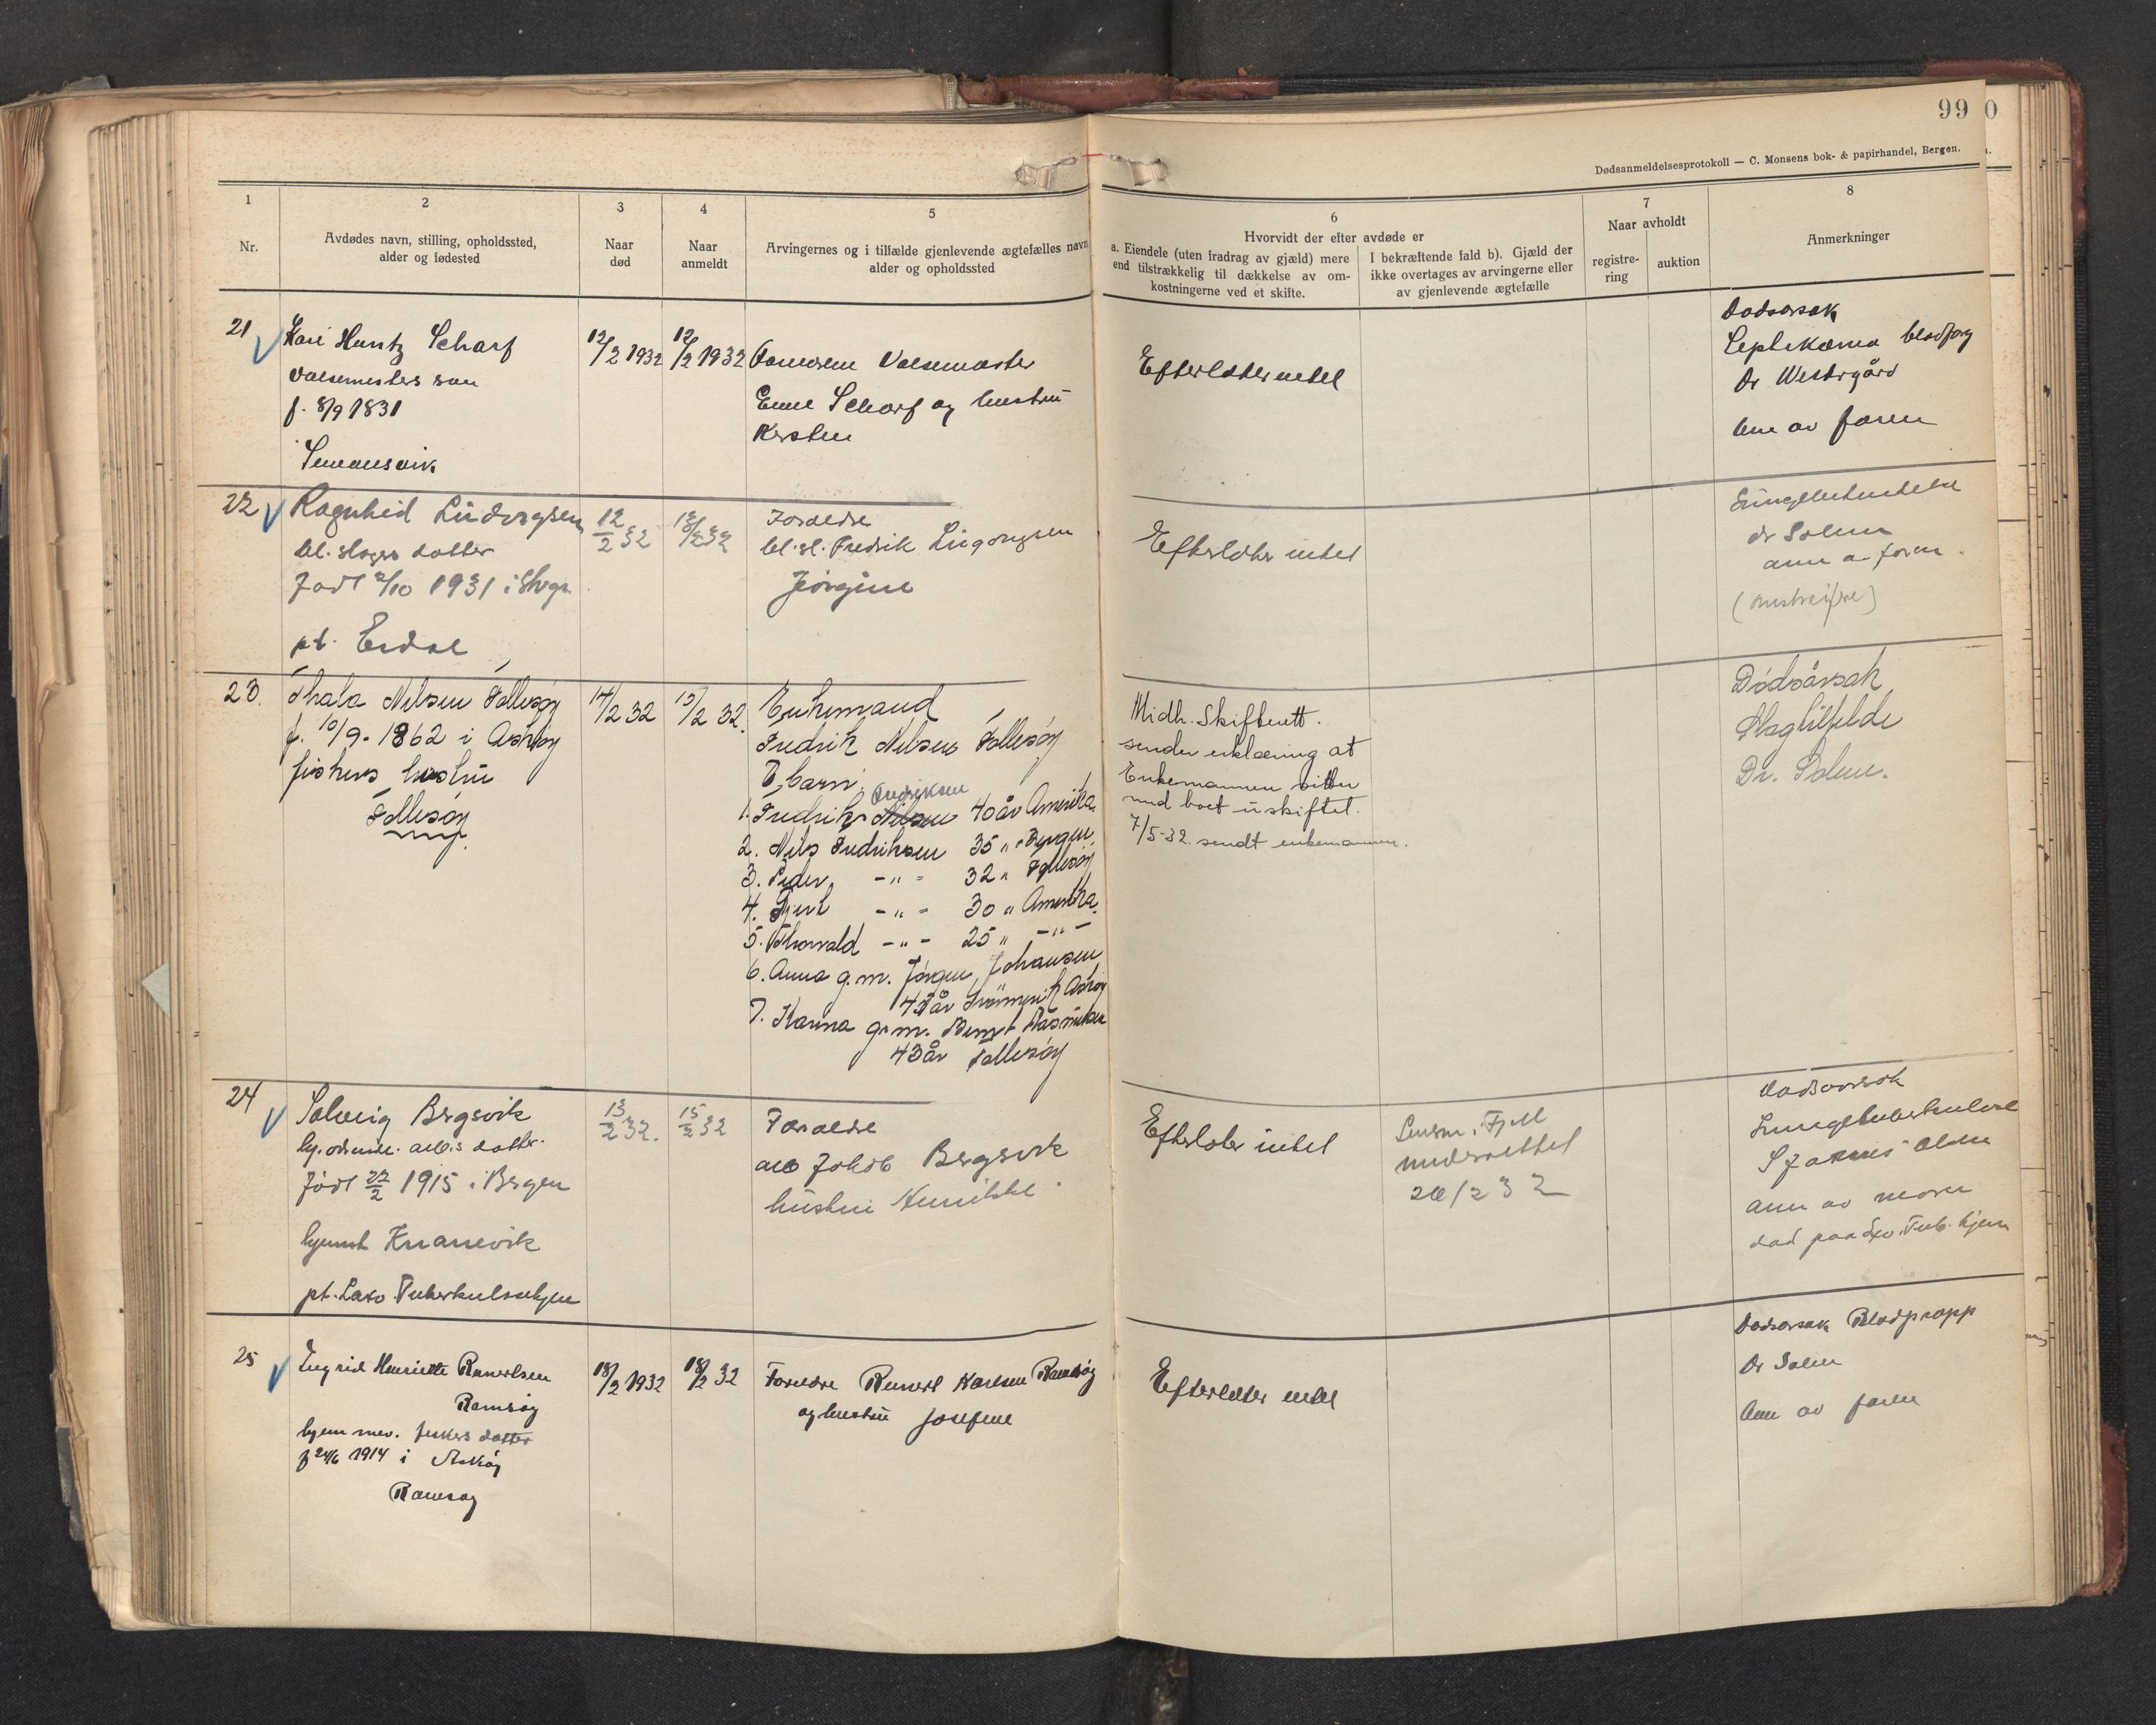 99 0
Dødsanmeldelsesprotokoll — C. Monsens bok- & papirhandel, Bergen.
1
Nr.
2
Avdødes navn, stilling, opholdssted,
alder og fødested
3
Naar
død
4
Naar
anmeldt
5
Arvingernes og i tilfælde gjenlevende ægtefælles navn
alder og opholdssted
6
Hvorvidt der efter avdøde er
a. Eiendele (uten fradrag av gjæld) mere
end tilstrækkelig til dækkelse av om-
kostningerne ved et skifte.
I bekræftende fald b). Gjæld der
ikke overtages av arvingerne eller
av gjenlevende ægtefælle
7
Naar avholdt
registre-
ring
auktion
8
Anmerkninger
21
Kari Scharf
valsemesters
f. 8/9 1831
12/2 1932
12/2 1932
Valsemester
Scharf og hustru
Kersten
Efterlater intet
Dødsorsak
blodforg
Dr
Ann av faren
22
Ragnhild
bl. slagers datter
Født 2/10 1931 i
pt. Erdal
12/2 32
13/2 32
Foreldre
bl. sl. Fredrik
Jørgine
Efterlater intet
dr Solem
ann a faren
23.
Thala Nilsen Follesøy
f. 10/9. 1862 i Askøy
fiskers hustru
Follesøy
14/2 32
15/2 32.
Enkemand
Fredrik Nilsen Follesøy
7 barn:
Fredriksen
1. Fredrik Nilsen 40 år Amerika
2. Nils Fredriksen 35 " Bergen
3. Peder -"- 32 " Follesøy
4. -"- 30 " Amerika
5. Thorvald -"- 25 " -"-
6. Anna g.m. Jørgen Johansen
Askøy
7. Karina g.m. Bernt Rasmussen
43 år Follesøy
Midh. Skifterett.
sender erklæring at
Enkemannen sitter
med boet uskiftet.
7/5-32. sendt enkemannen.
Dødsårsak
Slagtilfelde
Dr. Solem.
24
Solveig Bergsvik
arb.s datter
Født 27/2 1915 i Bergen
hjemst Knarrevik
pt. Laxe Tuberkulosehjem
13/2 32.
15/2 32
Foreldre
arb Jakob Bergsvik
hustru Henrikke
Efterlater intet
Lensm. i Fjell
underrettet
20/2 32
Dødsorsak
Lungetuberkulose
ann av moren
død paa Tub. hjem
25
Ingrid Henriette
Ramsøy
hjemmev. fiskers datter
f 24/6 1914 i Askøy
Ramsøy
18/2 1932
18/2 32
Foreldre Karlsen Ramsøy
og hustru Josefine
Efterlater intet
Dødsorsak Blodpropp
Dr Solem
Ann av faren